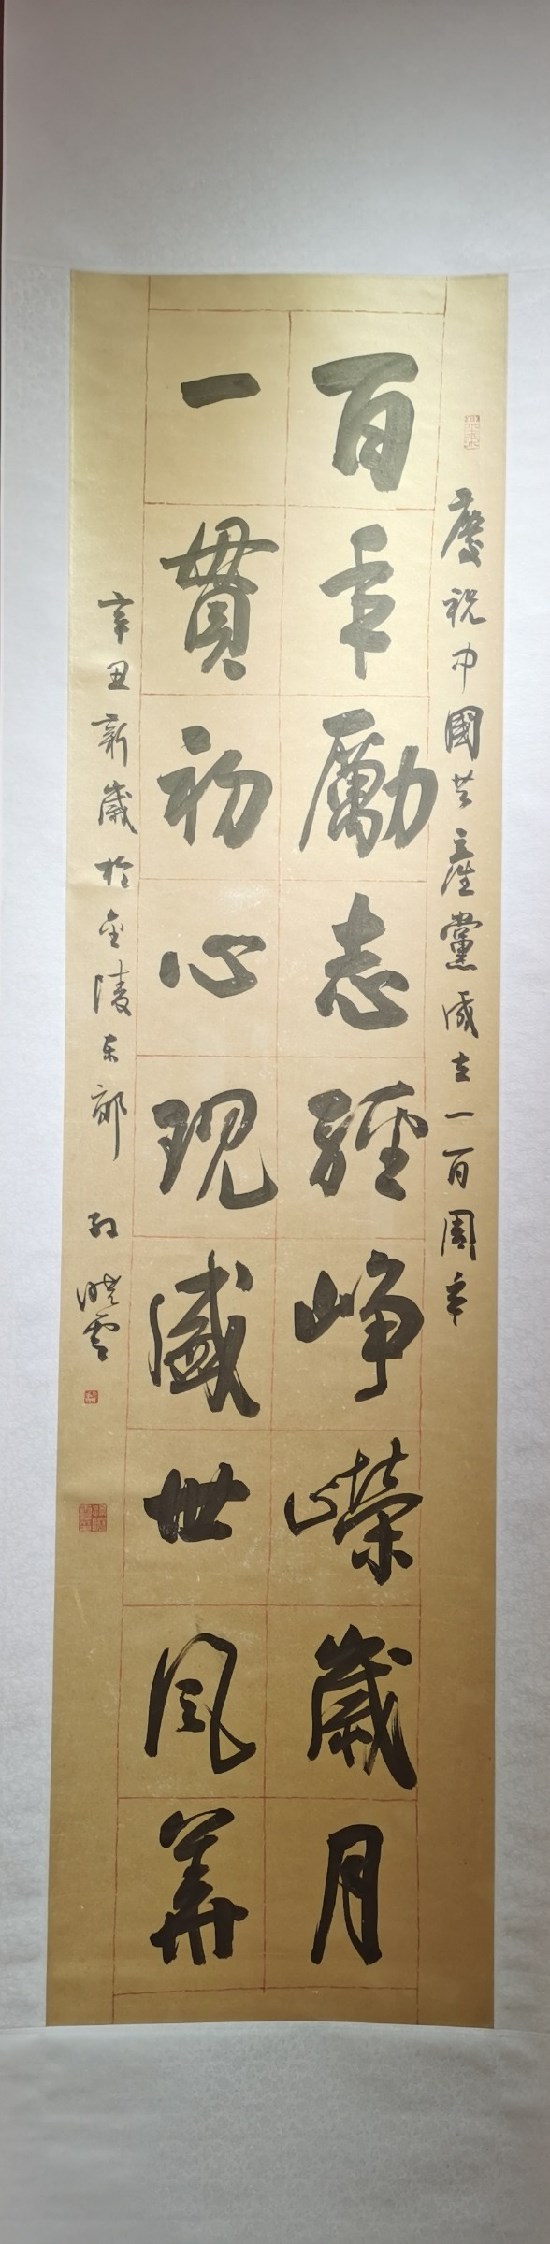 慶祝中國共產黨成立一百周年
百年勵志經崢嶸歲月
一貫初心現盛世風華
辛丑新歲於金陵東郊 孫曉雲